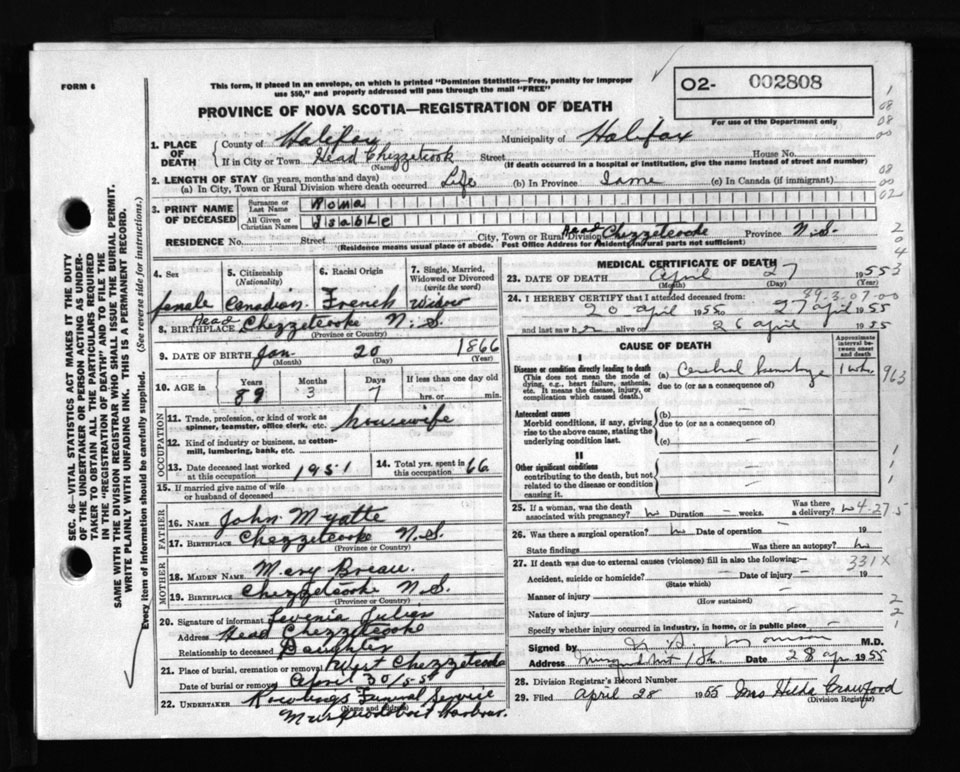 FORM 6
This form, if placed in an envelope, on which is printed "Dominion Statistics—Free, penalty for improper
use $50," and properly addressed will pass through the mail "FREE"
02- 002808
For use of the Department only
PROVINCE OF NOVA SCOTIA—REGISTRATION OF DEATH
1. PLACE OF DEATH
County of Halifax Municipality of Halifax
If in City or Town Head Chezzetcook Street House No.
(Name) (If death occurred in a hospital or institution, give the name instead of street and number)
2. LENGTH OF STAY (in years, months and days)
(a) In City, Town or Rural Division where death occurred Life (b) In Province Same (c) In Canada (if immigrant)
3. PRINT NAME OF DECEASED
Surname or Last Name Roma
All Given or Christian Names Isable
RESIDENCE No. Street City, Town or Rural Division Head Chezzetcooke Province N.S.
(Residence means usual place of abode. Post Office Address for Residents in rural parts not sufficient)
4. Sex 5. Citizenship (Nationality) 6. Racial Origin 7. Single, Married, Widowed or Divorced (write the word)
female Canadian French Widow
8. BIRTHPLACE Head Chezzetcooke N.S.
(Province or Country)
9. DATE OF BIRTH Jan 20 1866
(Month) (Day) (Year)
10. AGE in Years Months Days If less than one day old
89 3 7 hrs. or min.
OCCUPATION
11. Trade, profession, or kind of work as spinner, teamster, office clerk, etc. housewife
12. Kind of industry or business, as cotton-mill, lumbering, bank, etc.
13. Date deceased last worked at this occupation 1951 14. Total yrs. spent in this occupation 66
15. If married give name of wife or husband of deceased
FATHER
16. NAME John Myatte
17. BIRTHPLACE Chezzetcooke N.S.
(Province or Country)
MOTHER
18. MAIDEN NAME Mary Breau
19. BIRTHPLACE Chezzetcooke N.S.
(Province or Country)
20. Signature of informant Levenia Julien
Address Head Chezzetcooke
Relationship to deceased Daughter
21. Place of burial, cremation or removal West Chezzetcooke
Date of burial or removal April 30/55
22. UNDERTAKER Rawlings Funeral Service
(Name and address)
Musquodoboit Harbour.
MEDICAL CERTIFICATE OF DEATH
23. DATE OF DEATH April 27 1955
(Month) (Day)
89-3-07-00
24. I HEREBY CERTIFY that I attended deceased from:
20 april 1955 to 27 april 1955
and last saw her alive on 26 april 1955
CAUSE OF DEATH
Approximate interval between onset and death
I
Disease or condition directly leading to death
(This does not mean the mode of dying, e.g., heart failure, asthenia, etc. It means the disease, injury, or complication which caused death.)
(a) Cerebral hemorrhage 1 wk. 963
due to (or as a consequence of)
Antecedent causes
Morbid conditions, if any, giving rise to the above cause, stating the underlying condition last.
(b) —
due to (or as a consequence of)
(c) —
II
Other significant conditions
contributing to the death, but not related to the disease or condition causing it.
25. If a woman, was the death associated with pregnancy? no Duration – weeks. Was there a delivery? no 4-27-5
26. Was there a surgical operation? no Date of operation — 19
State findings Was there an autopsy? no
27. If death was due to external causes (violence) fill in also the following:— 331X
Accident, suicide or homicide? — Date of injury — 19
(State which)
Manner of injury —
(How sustained)
Nature of injury —
Specify whether injury occurred in industry, in home, or in public place —
Signed by M.D.
Address Date 28 apr 1955
28. Division Registrar's Record Number
29. Filed April 28 1955 Mrs Hilda Crawford
(Division Registrar)
SEC. 46—VITAL STATISTICS ACT MAKES IT THE DUTY
OF THE UNDERTAKER OR PERSON ACTING AS UNDER-
TAKER TO OBTAIN ALL THE PARTICULARS REQUIRED
IN THE "REGISTRATION OF DEATH" AND TO FILE THE
SAME WITH THE DIVISION REGISTRAR WHO SHALL ISSUE THE BURIAL PERMIT.
WRITE PLAINLY WITH UNFADING INK. THIS IS A PERMANENT RECORD.
Every item of information should be carefully supplied. (See reverse side for instructions.)